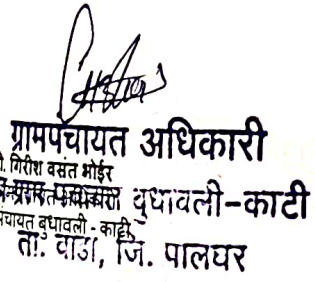 ग्रामपंचायत अधिकारी
गिरीश वसंत भोईर
बुधावली-काटी
बुधावली - काटी
ता. वाडा, जि. पालघर